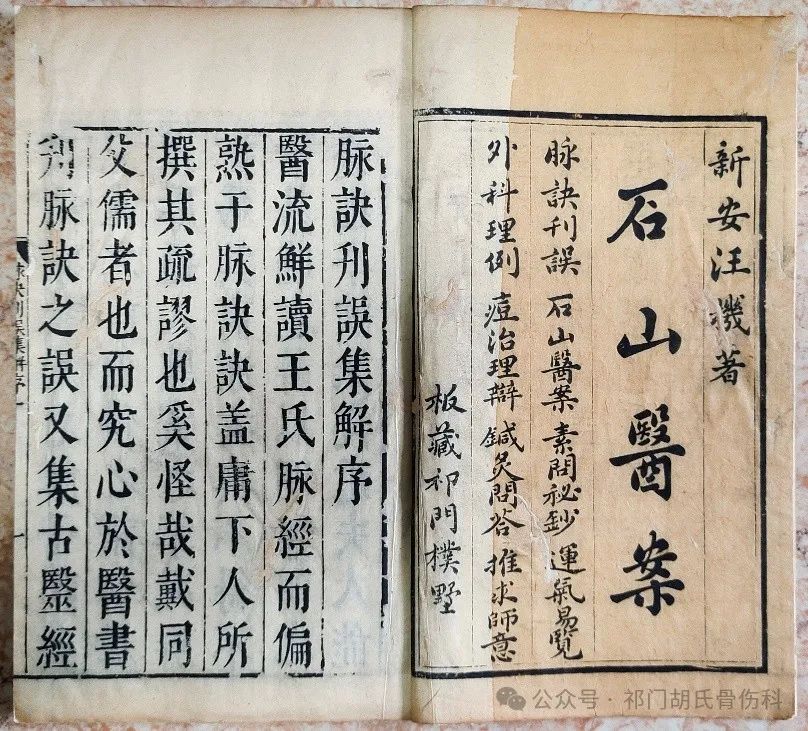 新安汪機著
石山醫案
脉訣刊誤 石山醫案 素問祕鈔 運氣易覽
外科理例 痘治理辯 鍼灸問答 推求師意
板藏祁門樸墅
脉訣刊誤集解序
醫流鮮讀王氏脉經而偏
熟于脉訣訣盖庸下人所
撰其疏謬也奚怪哉戴同
父儒者也而究心於醫書
刋脉訣之誤又集古毉經
脉訣刊誤集解序 一
公众号·祁门胡氏骨伤科